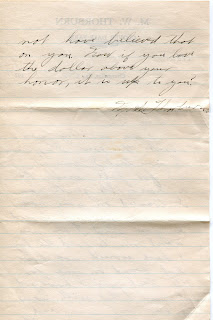 not have believed that
on you. Now if you love
the dollar above your
honor, it is up to you.